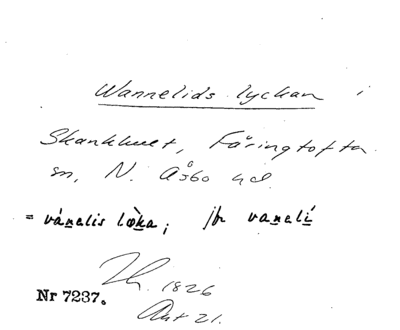 Wannelids lyckan i
Skankhult, Färingtofta
sn, N. Åsbo hd.
= vánelis lơka; jfr vanelí
1826
Nr 7237.
Akt 21.